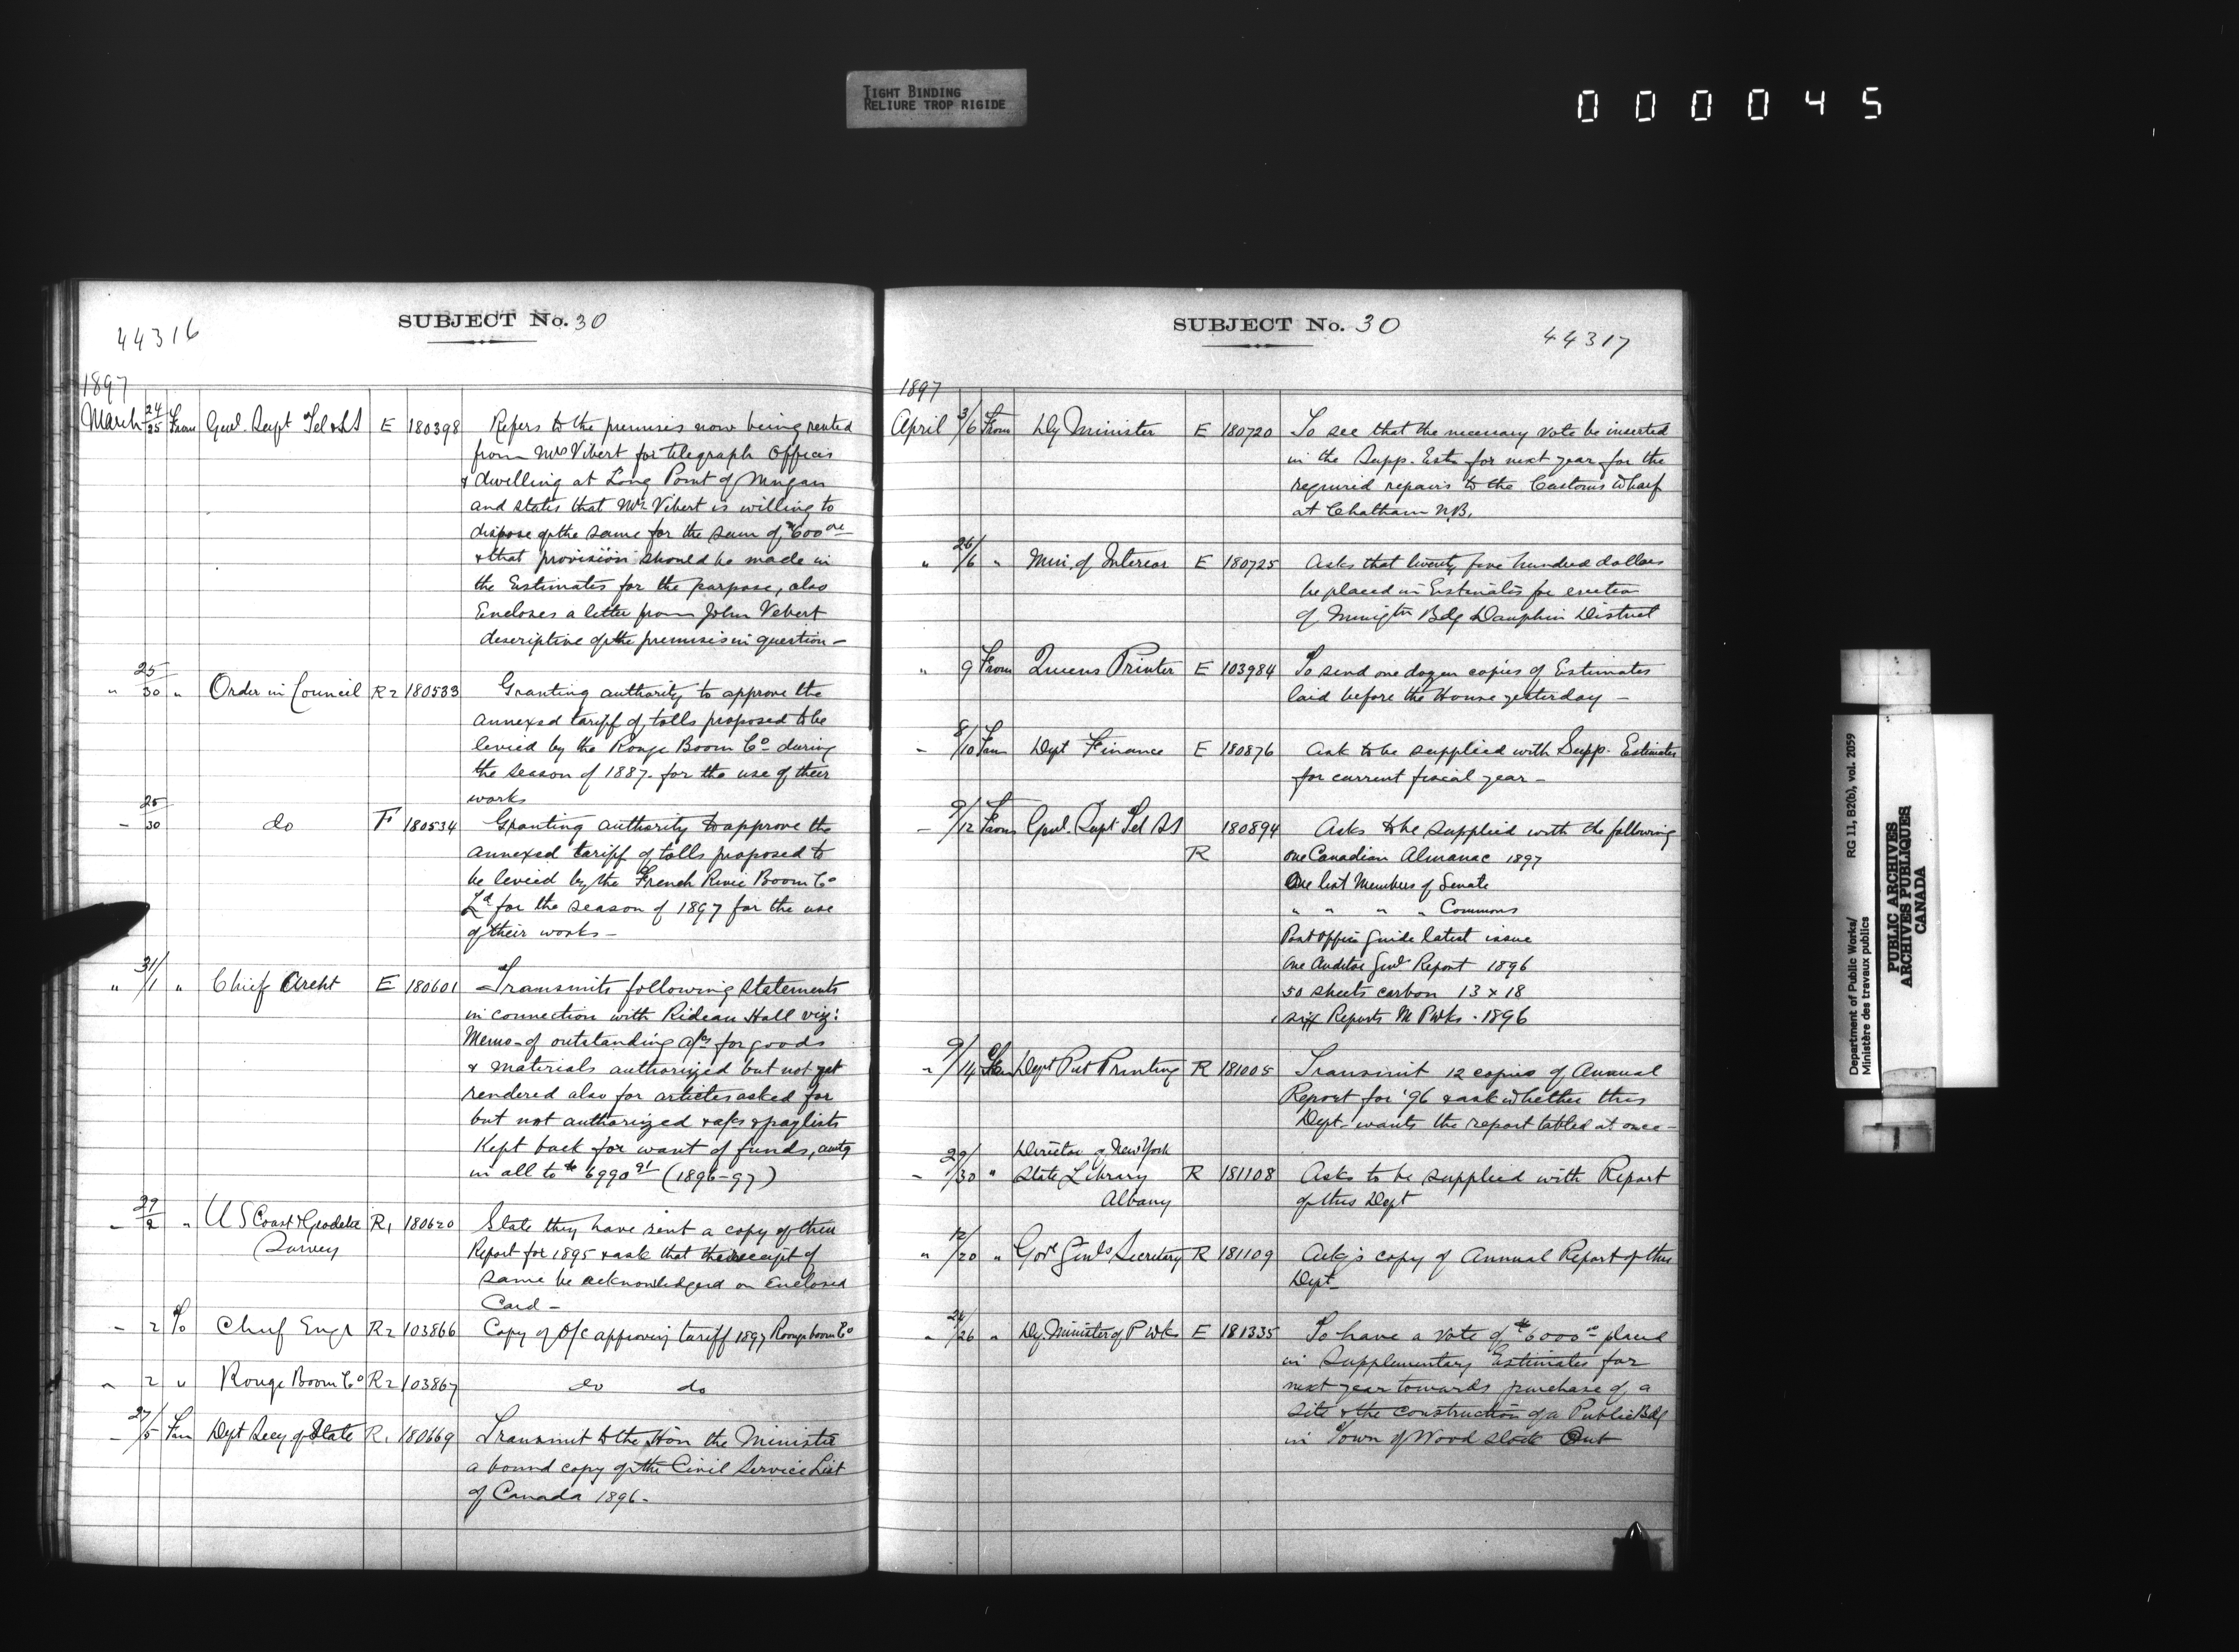 TIGHT BINDING
RELIURE TROP RIGIDE
000045
SUBJECT No. 30
44316
1897
March 24/25 From Genl. Supt Tel & SS E 180398 Refers to the premises now being rented
from Mrs Vibert for telegraph Offices
& dwelling at Long Point of Mingan
and states that Mrs Vibert is willing to
dispose of the same for the sum of $600 00
& that provision should be made in
the Estimates for the purpose, also
Encloses a letter from John Vebert
descriptive of the premises in question -
" 25/30 " Order in Council R2 180533 Granting authority to approve the
annexed tariff of tolls proposed to be
levied by the Rouge Boom Co during
the season of 1887. for the use of their
works
- 25/30 do F 180534 Granting authority to approve the
annexed tariff of tolls proposed to
be levied by the French River Boom Co
Ld for the season of 1897 for the use
of their works -
" 31/1 " Chief Archt E 180601 Transmits following statements
in connection with Rideau Hall viz:
Memo - of outstanding a/cs for goods
& materials authorized but not yet
rendered also for articles asked for
but not authorized & a/cs & paylists
Kept back for want of funds, amtg
in all to $6990 91 (1896-97)
- 29/2 " U S Coast & Geodetic R1 180620 State they have sent a copy of their
Survey
Report for 1895 & ask that the receipt of
same be acknowledged on Enclosed
Card -
- 2 To Chief Engr R2 103866 Copy of O/C approving tariff 1897 Rouge boom Co
" 2 " Rouge Boom Co R2 103867 do do
- 27/5 From Dept Secy of State R1 180669 Transmit to the Hon the Minister
a bound copy of the Civil Service List
of Canada 1896 -
SUBJECT No. 30
44317
1897
April 3/6 From Dy Minister E 180720 To see that the necessary vote be inserted
in the Supp. Ests for next year for the
required repairs to the Customs Wharf
at Chatham N.B.
" 26/6 " Min. of Interior E 180725 Asks that twenty five hundred dollars
be placed in Estimates for erection
of Immigtn Bdg Dauphin District
" 9 From Queens Printer E 103984 To send one dozen copies of Estimates
laid before the House yesterday -
- 8/10 From Dept Finance E 180876 Ask to be supplied with Supp. Estimates
for current fiscal year -
- 9/12 From Genl. Supt Tel SS 180894 Asks to be supplied with the following
R one Canadian Almanac 1897
One list Members of Senate
" " " " Commons
Post Office Guide latest issue
One Auditor Genl Report 1896
50 sheets carbon 13 x 18
six Reports M P Wks - 1896
" 9/14 From Dept Pub Printing R 181005 Transmit 12 copies of Annual
Report for '96 & ask whether this
Dept. wants the report tabled at once -
Director of New York
- 29/30 " State Library R 181108 Asks to be supplied with Report
Albany of this Dept
" 12/20 " Govr Genls Secretary R 181109 Ackg's copy of Annual Report of this
Dept -
" 24/26 " Dy. Minister of P Wks E 181335 To have a vote of $6000 00 placed
in Supplementary Estimates for
next year towards purchase of a
site & the construction of a Public Bdg
in Town of Woodstock Ont
Department of Public Works/
Ministère des travaux publics
RG 11, B2(b), vol. 2059
PUBLIC ARCHIVES
ARCHIVES PUBLIQUES
CANADA